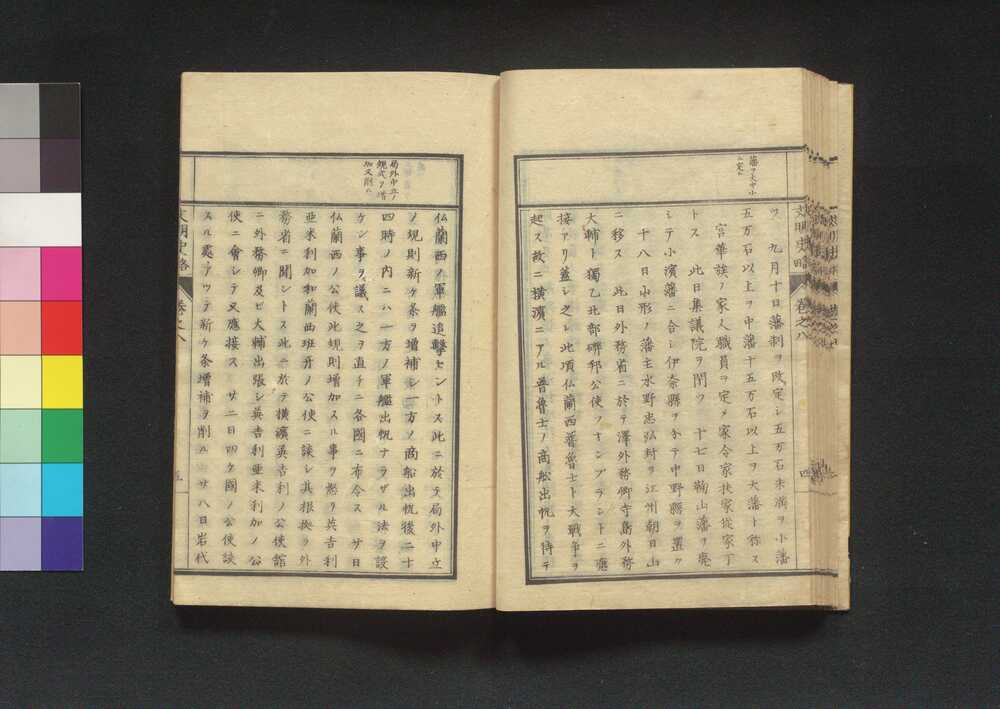 藩ヲ大中小
ニ定ム
ヲ 九月十日藩制ヲ改定シ五万石未満ヲ小藩
五万石以上ヲ中藩十五万石以上ヲ大藩ト称ス
宮華族ノ家人職員ヲ定メ家令家扶家従家丁
トス 此日集議院ヲ閉ク 十七日鞠山藩ヲ廃
シテ小濱藩ニ合シ伊奈縣ヲ分テ中野縣ヲ置ク
十八日山形ノ藩主水野忠弘封ヲ江州朝日山
ニ移ス 此日外務省ニ於テ澤外務卿寺島外務
大輔ト獨乙北部聯邦公使フオンブラントニ應
接アリ蓋シ之レ此頃仏蘭西普魯士ト大戦争ヲ
起ス故ニ横濱ニアル普魯士ノ商舩出帆ヲ待テ
文明史略
巻之八
四
局外中立ノ
規式ヲ増
加又削ル
仏蘭西ノ軍艦追撃セントス此ニ於テ局外中立
ノ規則新ケ条ヲ増補シ一方ノ商船出帆後二十
四時ノ内ニハ一方ノ軍艦出帆ナラザル法ヲ設
ケン事ヲ議ス之ヲ直チニ各國ニ布令ス 廿日
仏蘭西ノ公使此規則増加スル事ヲ怒リ英吉利
亜米利加和蘭西班牙ノ公使ニ談シ其根拠ヲ外
務省ニ聞ントス此ニ於テ横濱英吉利ノ公使館
ニ外務卿及ビ大輔出張シ英吉利亜米利加ノ公
使ニ會シテ又應接ス 廿二日四ケ國ノ公使談
スル処アツテ新ケ条増補ヲ削ル 廿八日岩代
文明史略
巻之八
五